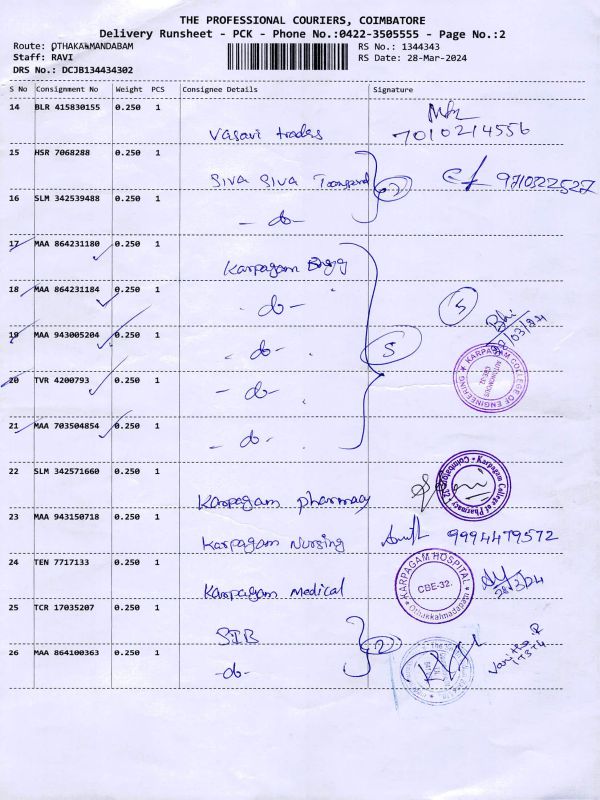 THE PROFESSIONAL COURIERS, COIMBATORE
Delivery Runsheet - PCK - Phone No.:0422-3505555 - Page No.:2
Route: OTHAKALMANDABAM
RS No.: 1344343
Staff: RAVI
RS Date: 28-Mar-2024
DRS No.: DCJB134434302
S No Consignment No Weight PCS Consignee Details Signature
14 BLR 415830155 0.250 1
Vasavi traders 7010214556
15 HSR 7068288 0.250 1
Siva Siva 9710322527
16 SLM 342539488 0.250 1
- do -
17 MAA 864231180 0.250 1
Karpagam Engg
18 MAA 864231184 0.250 1
- do - 5
19 MAA 943005204 0.250 1
- do - 5
KARPAGAM COLLEGE OF ENGINEERING
AUTONOMOUS
CBE-32
20 TVR 4200793 0.250 1
- do -
21 MAA 703504854 0.250 1
- do -
22 SLM 342571660 0.250 1
Karpagam pharmacy
Karpagam College of Pharmacy
23 MAA 943150718 0.250 1
Karpagam Nursing 9994479572
24 TEN 7717133 0.250 1
Karpagam Medical
KARPAGAM HOSPITAL
CBE-32.
Othakkalmandapam
25 TCR 17035207 0.250 1
SIB 2
26 MAA 864100363 0.250 1
- do -